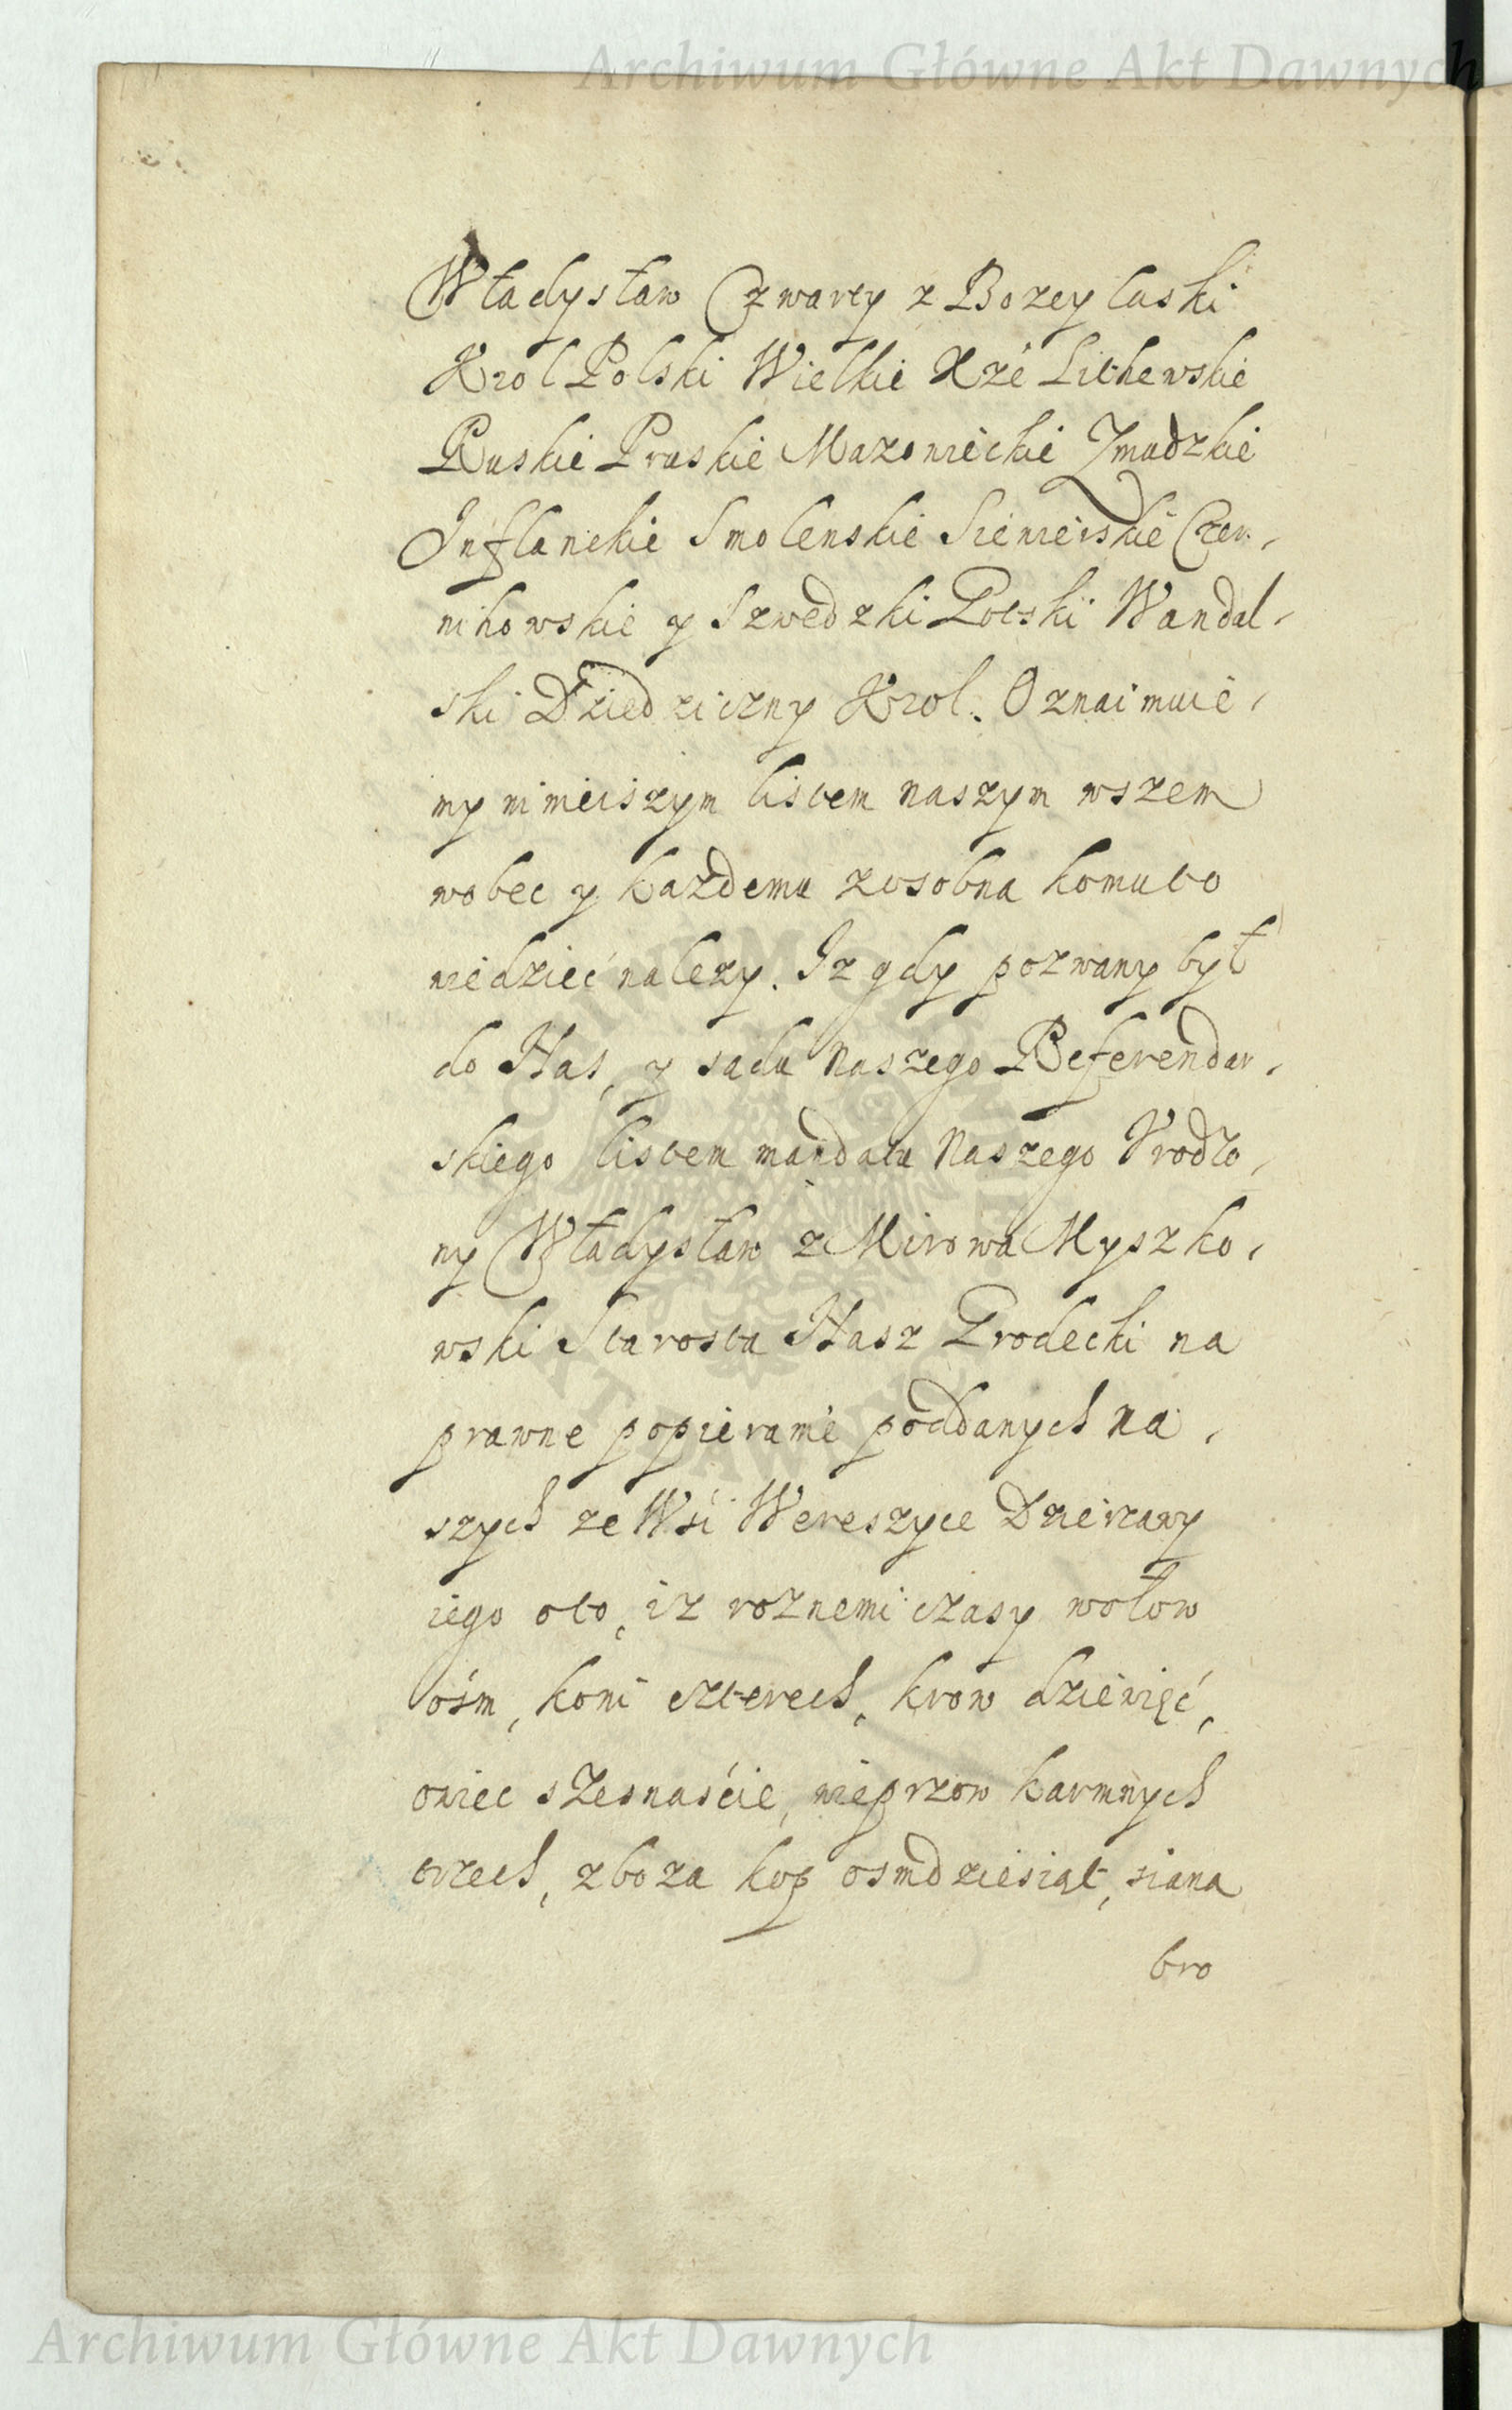 Archiwum Główne Akt Dawnych
Władysław Czwarty z Bozey łaski
Krol Polski Wielkie Xze Lithewskie
Ruskie Pruskie Mazowieckie Zmudzkie
Inflanckie Smolenskie Siewierskie Czer-
nihowskie y Szwedzki Gotski Wandal-
ski Dziedziczny Krol. Oznaimuie-
my ninieiszym listem naszym wszem
wobec y kazdemu zosobna komu to
wiedzieć nalezy. Iz gdy pozwany był
do Nas, y sadu naszego Referendar-
skiego listem mandatu Naszego Vrodzo-
ny Władysław z Mirowa Myszko-
wski Starosta Nasz Grodecki na
prawne popieranie poddanych na-
szych ze Wsi Wereszyce Dzierzawy
iego oto, iz roznemi czasy wołow
ośm, koni czterech, krow dziewięć,
owiec szesnaście, wieprzow karmnych
trzech, zboza kop osmdziesiąt, siana
bro
Archiwum Główne Akt Dawnych